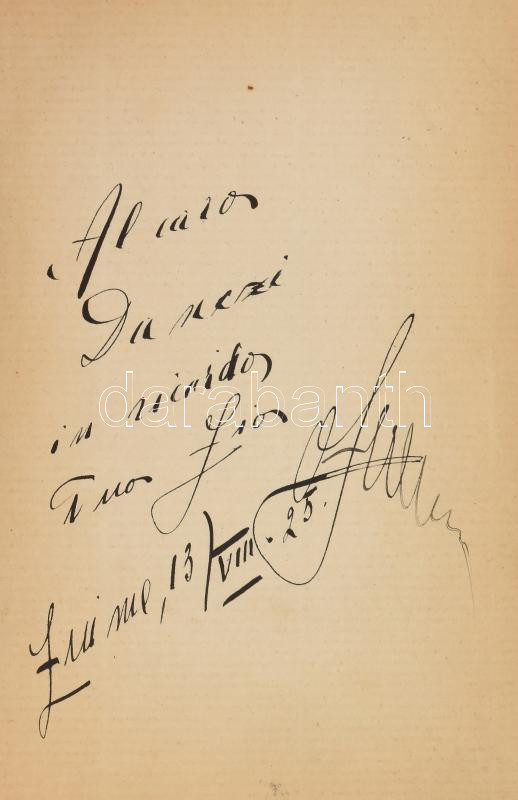 Al caro
Danezi
in ricordo
Tuo
Fiume, 13/VIII. 25.
darabanth